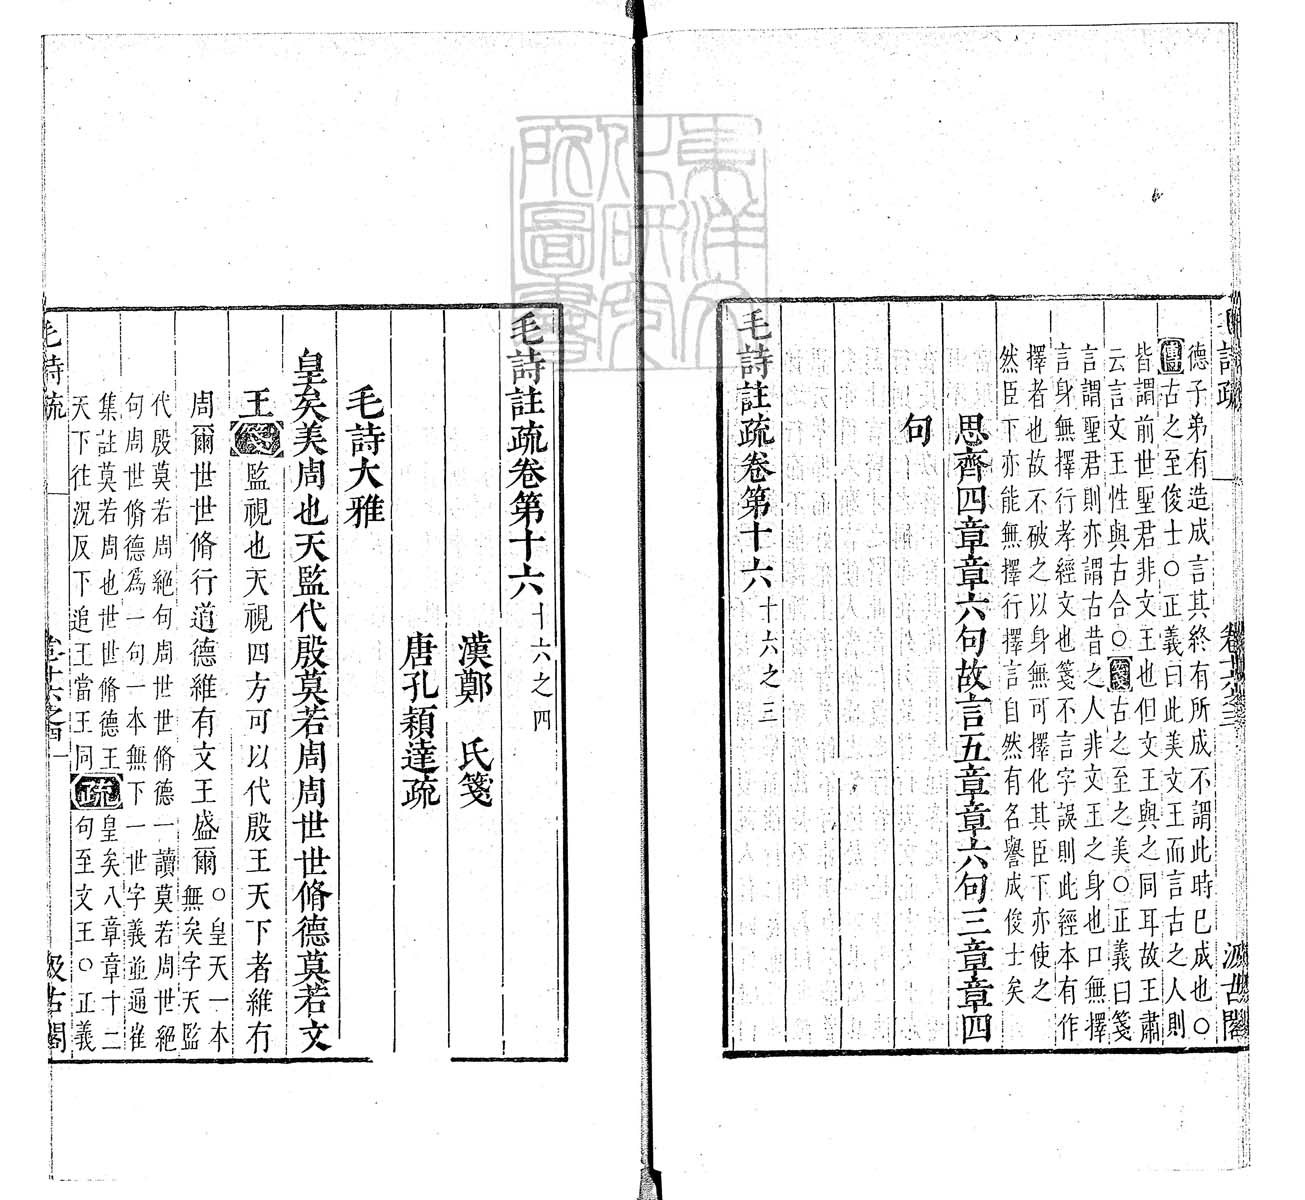 毛詩疏
卷十六之三
汲古閣
德子弟有造成言其終有所成不謂此時已成也○
傳古之至俊士○正義曰此美文王而言古之人則
皆謂前世聖君非文王也但文王與之同耳故王肅
云言文王性與古合○箋古之至之美○正義曰箋
言謂聖君則亦謂古昔之人非文王之身也口無擇
言身無擇行孝經文也箋不言字誤則此經本有作
擇者也故不破之以身無可擇化其臣下亦使之
然臣下亦能無擇行擇言自然有名譽成俊士矣
思齊四章章六句故言五章章六句三章章四
句
毛詩註疏卷第十六 十六之三
毛詩註疏卷第十六 十六之四
漢鄭 氏箋
唐孔穎達疏
毛詩大雅
皇矣美周也天監代殷莫若周周世世脩德莫若文
王箋監視也天視四方可以代殷王天下者維有
周爾世世脩行道德維有文王盛爾○皇天一本
無矣字天監
代殷莫若周絕句周世世脩德一讀莫若周世絕
句周世脩德爲一句一本無下一世字義並通崔
集註莫若周也世世脩德王
天下往況反下追王當王同
疏皇矣八章章十二
句至文王○正義
毛詩疏
卷十六之四
一
汲古閣
東洋文
化研究
所圖書